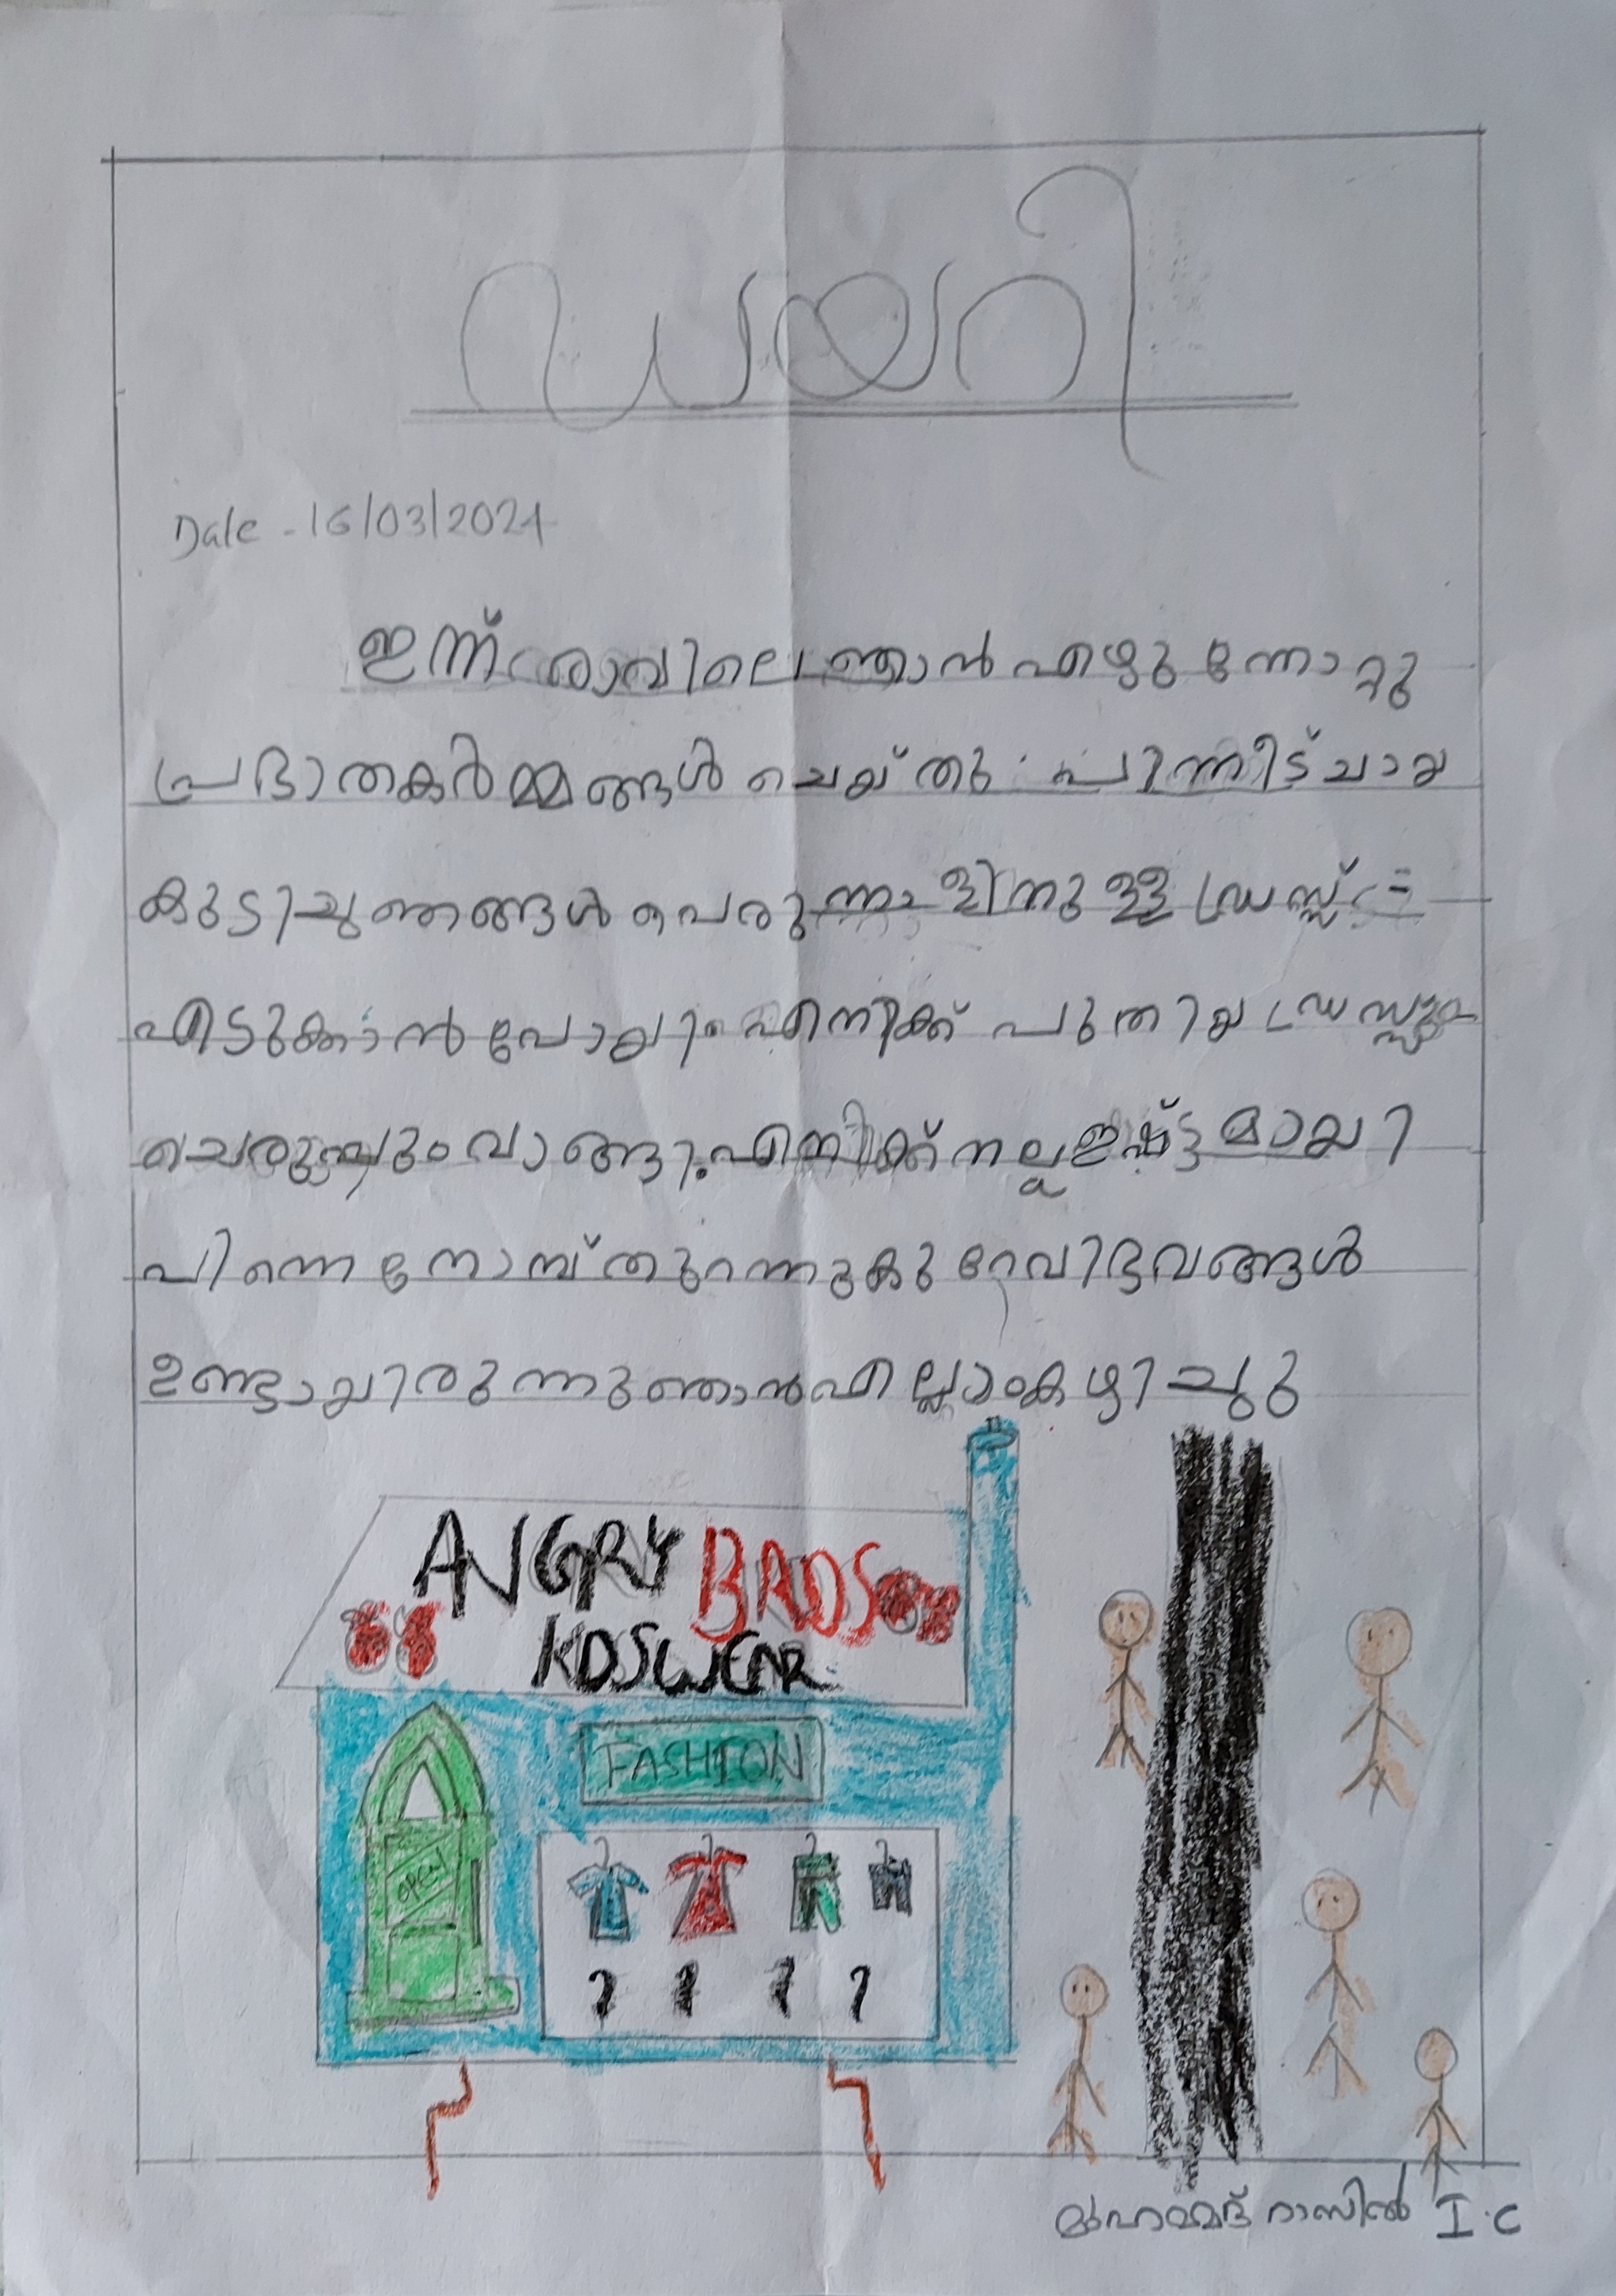 ഡയറി
Date - 16/03/2024
ഇന്ന് രാവിലെ ഞാൻ എഴുന്നോറ്റു
പ്രഭാതകർമ്മങ്ങൾ ചെയ്തു. പിന്നീട് ചായ
കുടിച്ചു ഞങ്ങൾ പെരുന്നാളിനുള്ള ഡ്രസ്സ്
എടുക്കാൻ പോയി. എനിക്ക് പുതിയ ഡ്രസ്സും
ചെരുപ്പും വാങ്ങി. എനിക്ക് നല്ല ഇഷ്ട്ടമായി
പിന്നെ നോമ്പ് തുറന്നു കുറേ വിഭവങ്ങൾ
ഉണ്ടായിരുന്നു ഞാൻ എല്ലാം കഴിച്ചു
ANGRY BADS
KDSWEAR
FASHION
OPEN
മുഹമ്മദ് റാസിൽ I.C